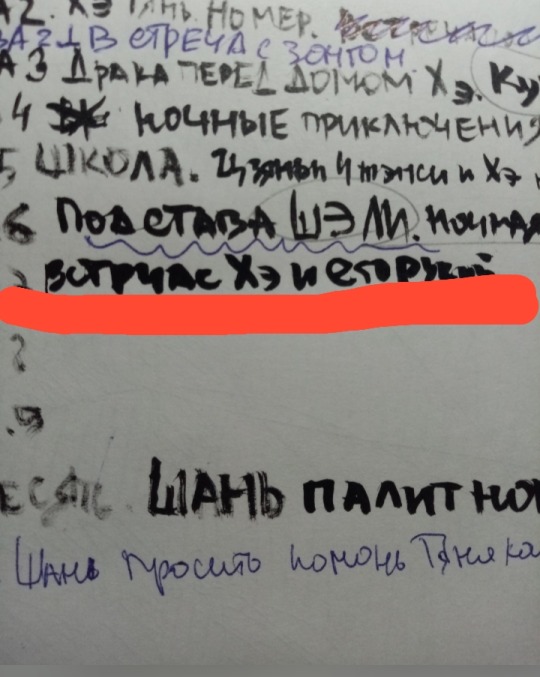 А2. ХЭ ТЯНЬ. НОМЕР.
ВСТРЕЧА С ЗОНТОМ
А 3 ДРАКА ПЕРЕД ДОМОМ ХЭ. КУ
4 НОЧНЫЕ ПРИКЛЮЧЕНИЯ
5 ШКОЛА. Цзянь Чжэнси и Хэ
6 ПОДСТАВА ШЭ ЛИ. НОЧНАЯ
ВСТРУЧАС ХЭ И ЕГО
?
.9
ШАНЬ ПАЛИТ НО
Шань просить помочь Тяня ка